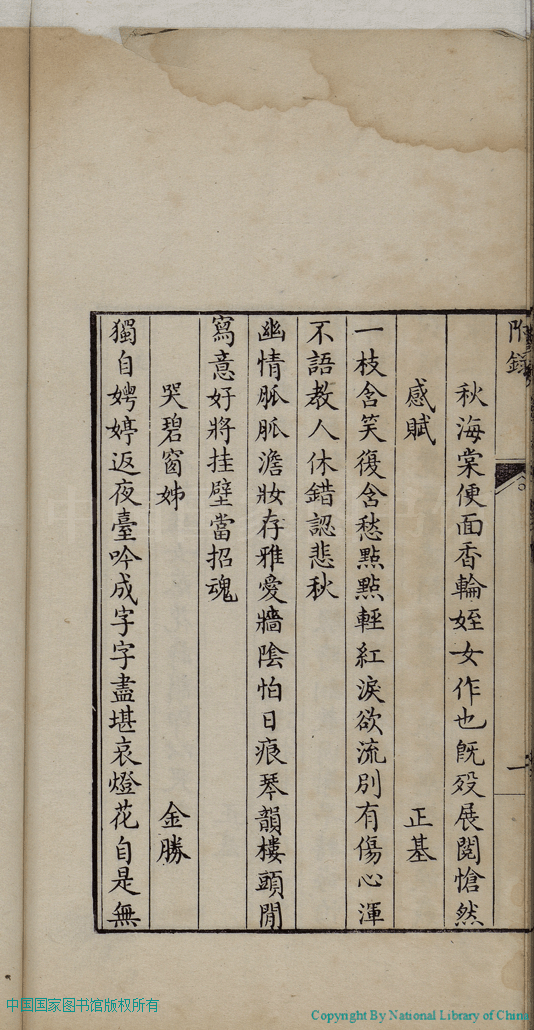 附錄
一
秋海棠便面香輪姪女作也旣歿展閱愴然
感賦 正基
一枝含笑復含愁點點輕紅淚欲流別有傷心渾
不語教人休錯認悲秋
幽情脈脈澹妝存雅愛牆陰怕日痕琴韻樓頭閒
寫意好將挂壁當招魂
哭碧窗姊 金勝
獨自娉婷返夜臺吟成字字盡堪哀燈花自是無
中国国家图书馆版权所有
Copyright By National Library of China